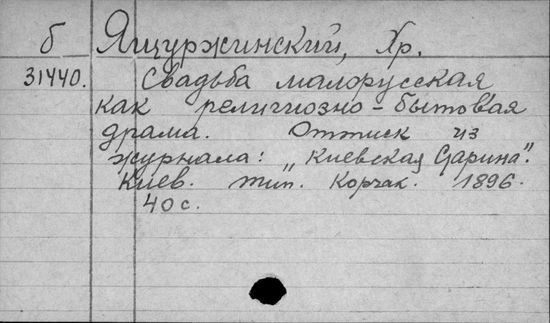 б Ящуржинский, Хр.
31440. Свадьба малорусская,
как религиозно-бытовая
драма. Оттиск из
журнала: „Киевская Старина".
Киев. тип. Корчак. 1896.
40 с.